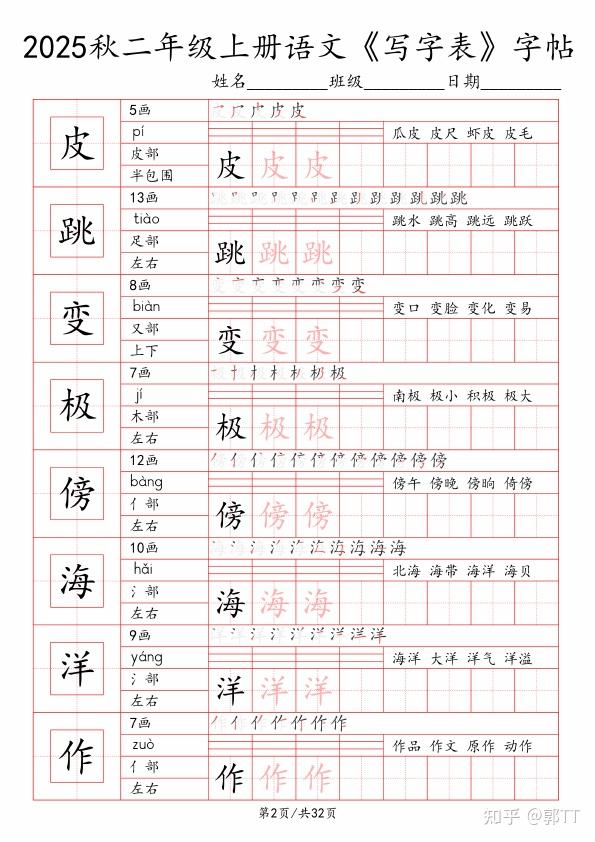 2025秋二年级上册语文《写字表》字帖
姓名________班级________日期________
皮
5画
pí
瓜皮 皮尺 虾皮 皮毛
皮部
半包围
皮 皮 皮
跳
13画
tiào
跳水 跳高 跳远 跳跃
足部
左右
跳 跳 跳
变
8画
biàn
变口 变脸 变化 变易
又部
上下
变 变 变
极
7画
jí
南极 极小 积极 极大
木部
左右
极 极 极
傍
12画
bàng
傍午 傍晚 傍晌 倚傍
亻部
左右
傍 傍 傍
海
10画
hǎi
北海 海带 海洋 海贝
氵部
左右
海 海 海
洋
9画
yáng
海洋 大洋 洋气 洋溢
氵部
左右
洋 洋 洋
作
7画
zuò
作品 作文 原作 动作
亻部
左右
作 作 作
第2页/共32页
知乎 @郭TT